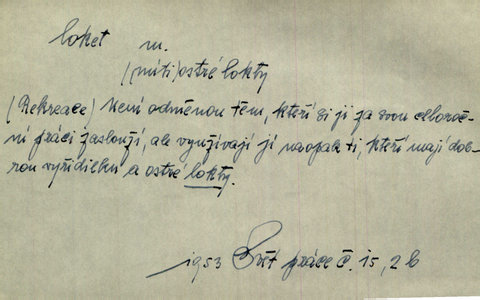 loket m.
(míti) ostré lokty
(Rekreace) není odměnou těm, kteří si ji za svou celoroč-
ní práci zaslouží, ale využívají jí naopak ti, kteří mají dob-
rou vyřídilku a ostré lokty.
1953 Svět práce č. 15, 2b